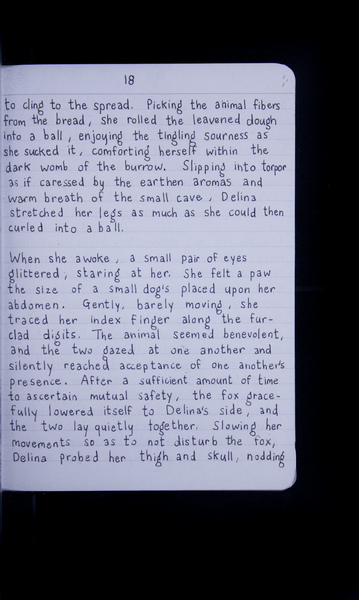 18
to cling to the spread. Picking the animal fibers
from the bread, she rolled the leavened dough
into a ball, enjoying the tingling sourness as
she sucked it, comforting herself within the
dark womb of the burrow. Slipping into torpor
as if caressed by the earthen aromas and
warm breath of the small cave, Delina
stretched her legs as much as she could then
curled into a ball.
When she awoke, a small pair of eyes
glittered, staring at her. She felt a paw
the size of a small dog's placed upon her
abdomen. Gently, barely moving, she
traced her index finger along the fur-
clad digits. The animal seemed benevolent,
and the two gazed at one another and
silently reached acceptance of one another's
presence. After a sufficient amount of time
to ascertain mutual safety, the fox grace-
fully lowered itself to Delina's side, and
the two lay quietly together. Slowing her
movements so as to not disturb the fox,
Delina probed her thigh and skull, nodding